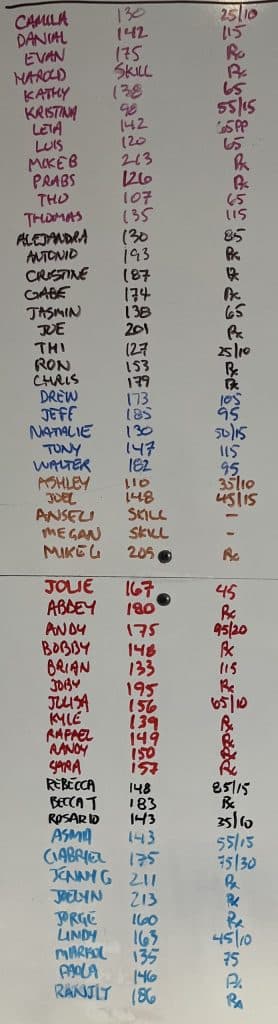 CAMILA 130 25/10
DANIAL 142 115
EVAN 175 Rx
HAROLD SKILL Rx
KATHY 138 65
KRISTINA 98 55/15
LETA 142 65PP
LUIS 120 65
MIKE B 213 Rx
PRABS 126 Rx
THU 107 65
THOMAS 135 115
ALEJANDRA 130 85
ANTONIO 193 Rx
CRISTINE 187 Rx
GABE 174 Rx
JASMIN 138 65
JOE 201 Rx
THI 127 25/10
RON 153 Rx
CHRIS 179 Rx
DREW 173 105
JEFF 185 95
NATALIE 130 50/15
TONY 147 115
WALTER 182 95
ASHLEY 110 35/10
JOEL 148 45/15
ANSELI SKILL -
MEGAN SKILL -
MIKE G 205 Rx
JOLIE 167 45
ABBEY 180 Rx
ANDY 175 95/20
BOBBY 148 Rx
BRIAN 133 115
JOBY 195 Rx
JULISA 156 65/10
KYLE 139 Rx
RAFAEL 149 Rx
RANDY 150 Rx
SARA 157 Rx
REBECCA 148 85/15
BECCA T 183 Rx
ROSARIO 143 35/10
ASMA 143 55/15
GABRIEL 175 75/30
JENNY G 211 Rx
JOELYN 213 Rx
JORGE 160 Rx
LINDY 163 45/10
135 75
PAOLA 146 Rx
RANJIT 186 Rx